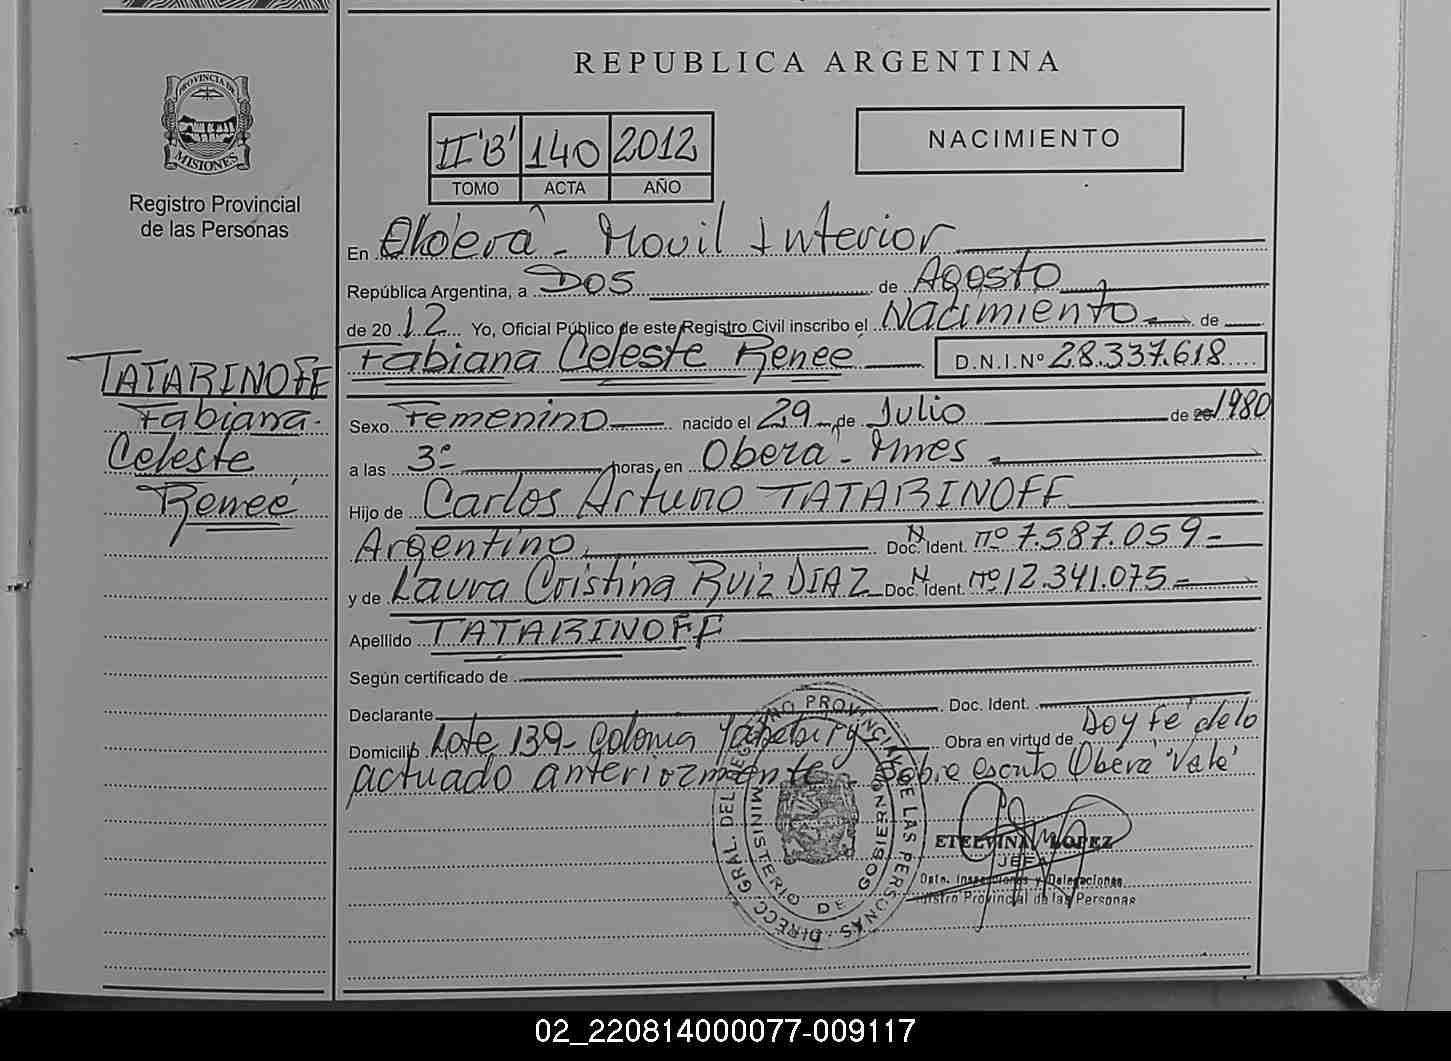 REPUBLICA ARGENTINA
PROVINCIA DE
MISIONES
Registro Provincial
de las Personas
II 'B' 140 2012
TOMO ACTA AÑO
NACIMIENTO
En Oberá - Movil Interior
República Argentina, a Dos de Agosto
de 20 12 Yo, Oficial Público de este Registro Civil inscribo el Nacimiento de
Fabiana Celeste Reneé D.N.I.Nº 28.337.618
TATARINOFF
Fabiana
Celeste
Reneé
Sexo Femenino nacido el 29 de Julio de 20 1980
a las 3º horas, en Oberá - Mnes
Hijo de Carlos Arturo TATARINOFF
Argentino Doc. Ident. Nº 7.587.059
y de Laura Cristina Ruiz DIAZ Doc. Ident. Nº 12.341.075
Apellido TATARINOFF
Según certificado de
Declarante Doc. Ident.
Domicilio Lote 139 - Colonia Yabebiry Obra en virtud de Doy fé de lo
actuado anteriormente - Sobre escrito Oberá 'Vale'
DIRECC. GRAL. DEL REGISTRO PROVINCIAL DE LAS PERSONAS
MINISTERIO DE GOBIERNO
ETELVINA LOPEZ
JEFA
Dpto. Inspecciones y Delegaciones
Registro Provincial de las Personas
02_220814000077-009117